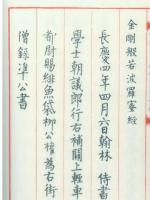 金剛般若波羅蜜經
長慶四年四月六日翰林侍書
學士朝議郎行右補闕上輕車
都尉賜緋魚袋柳公權為右街
僧録準公書